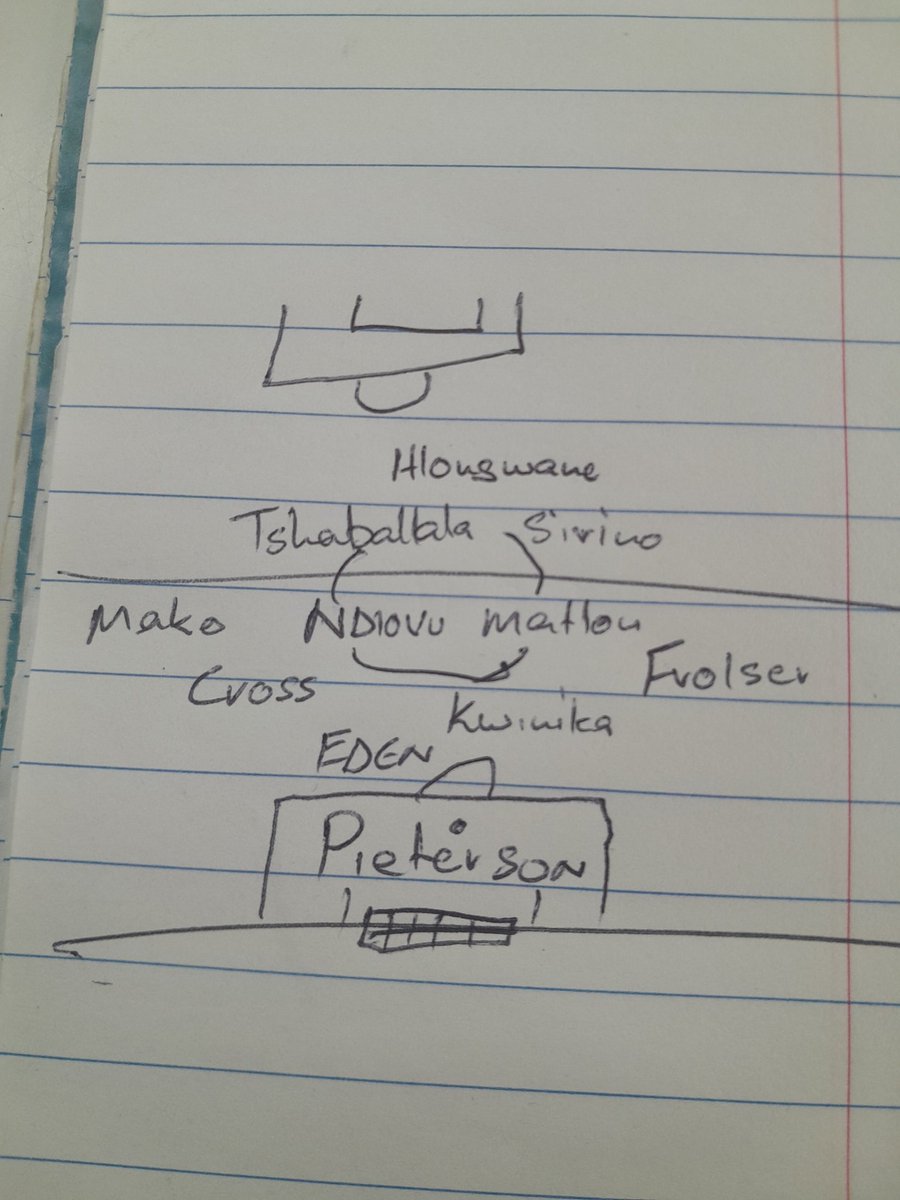 Hlongwane
Tshaballala Sirino
Mako NDlovu matlou
Cross Frolser
Kwinika
EDEN
Pieterson